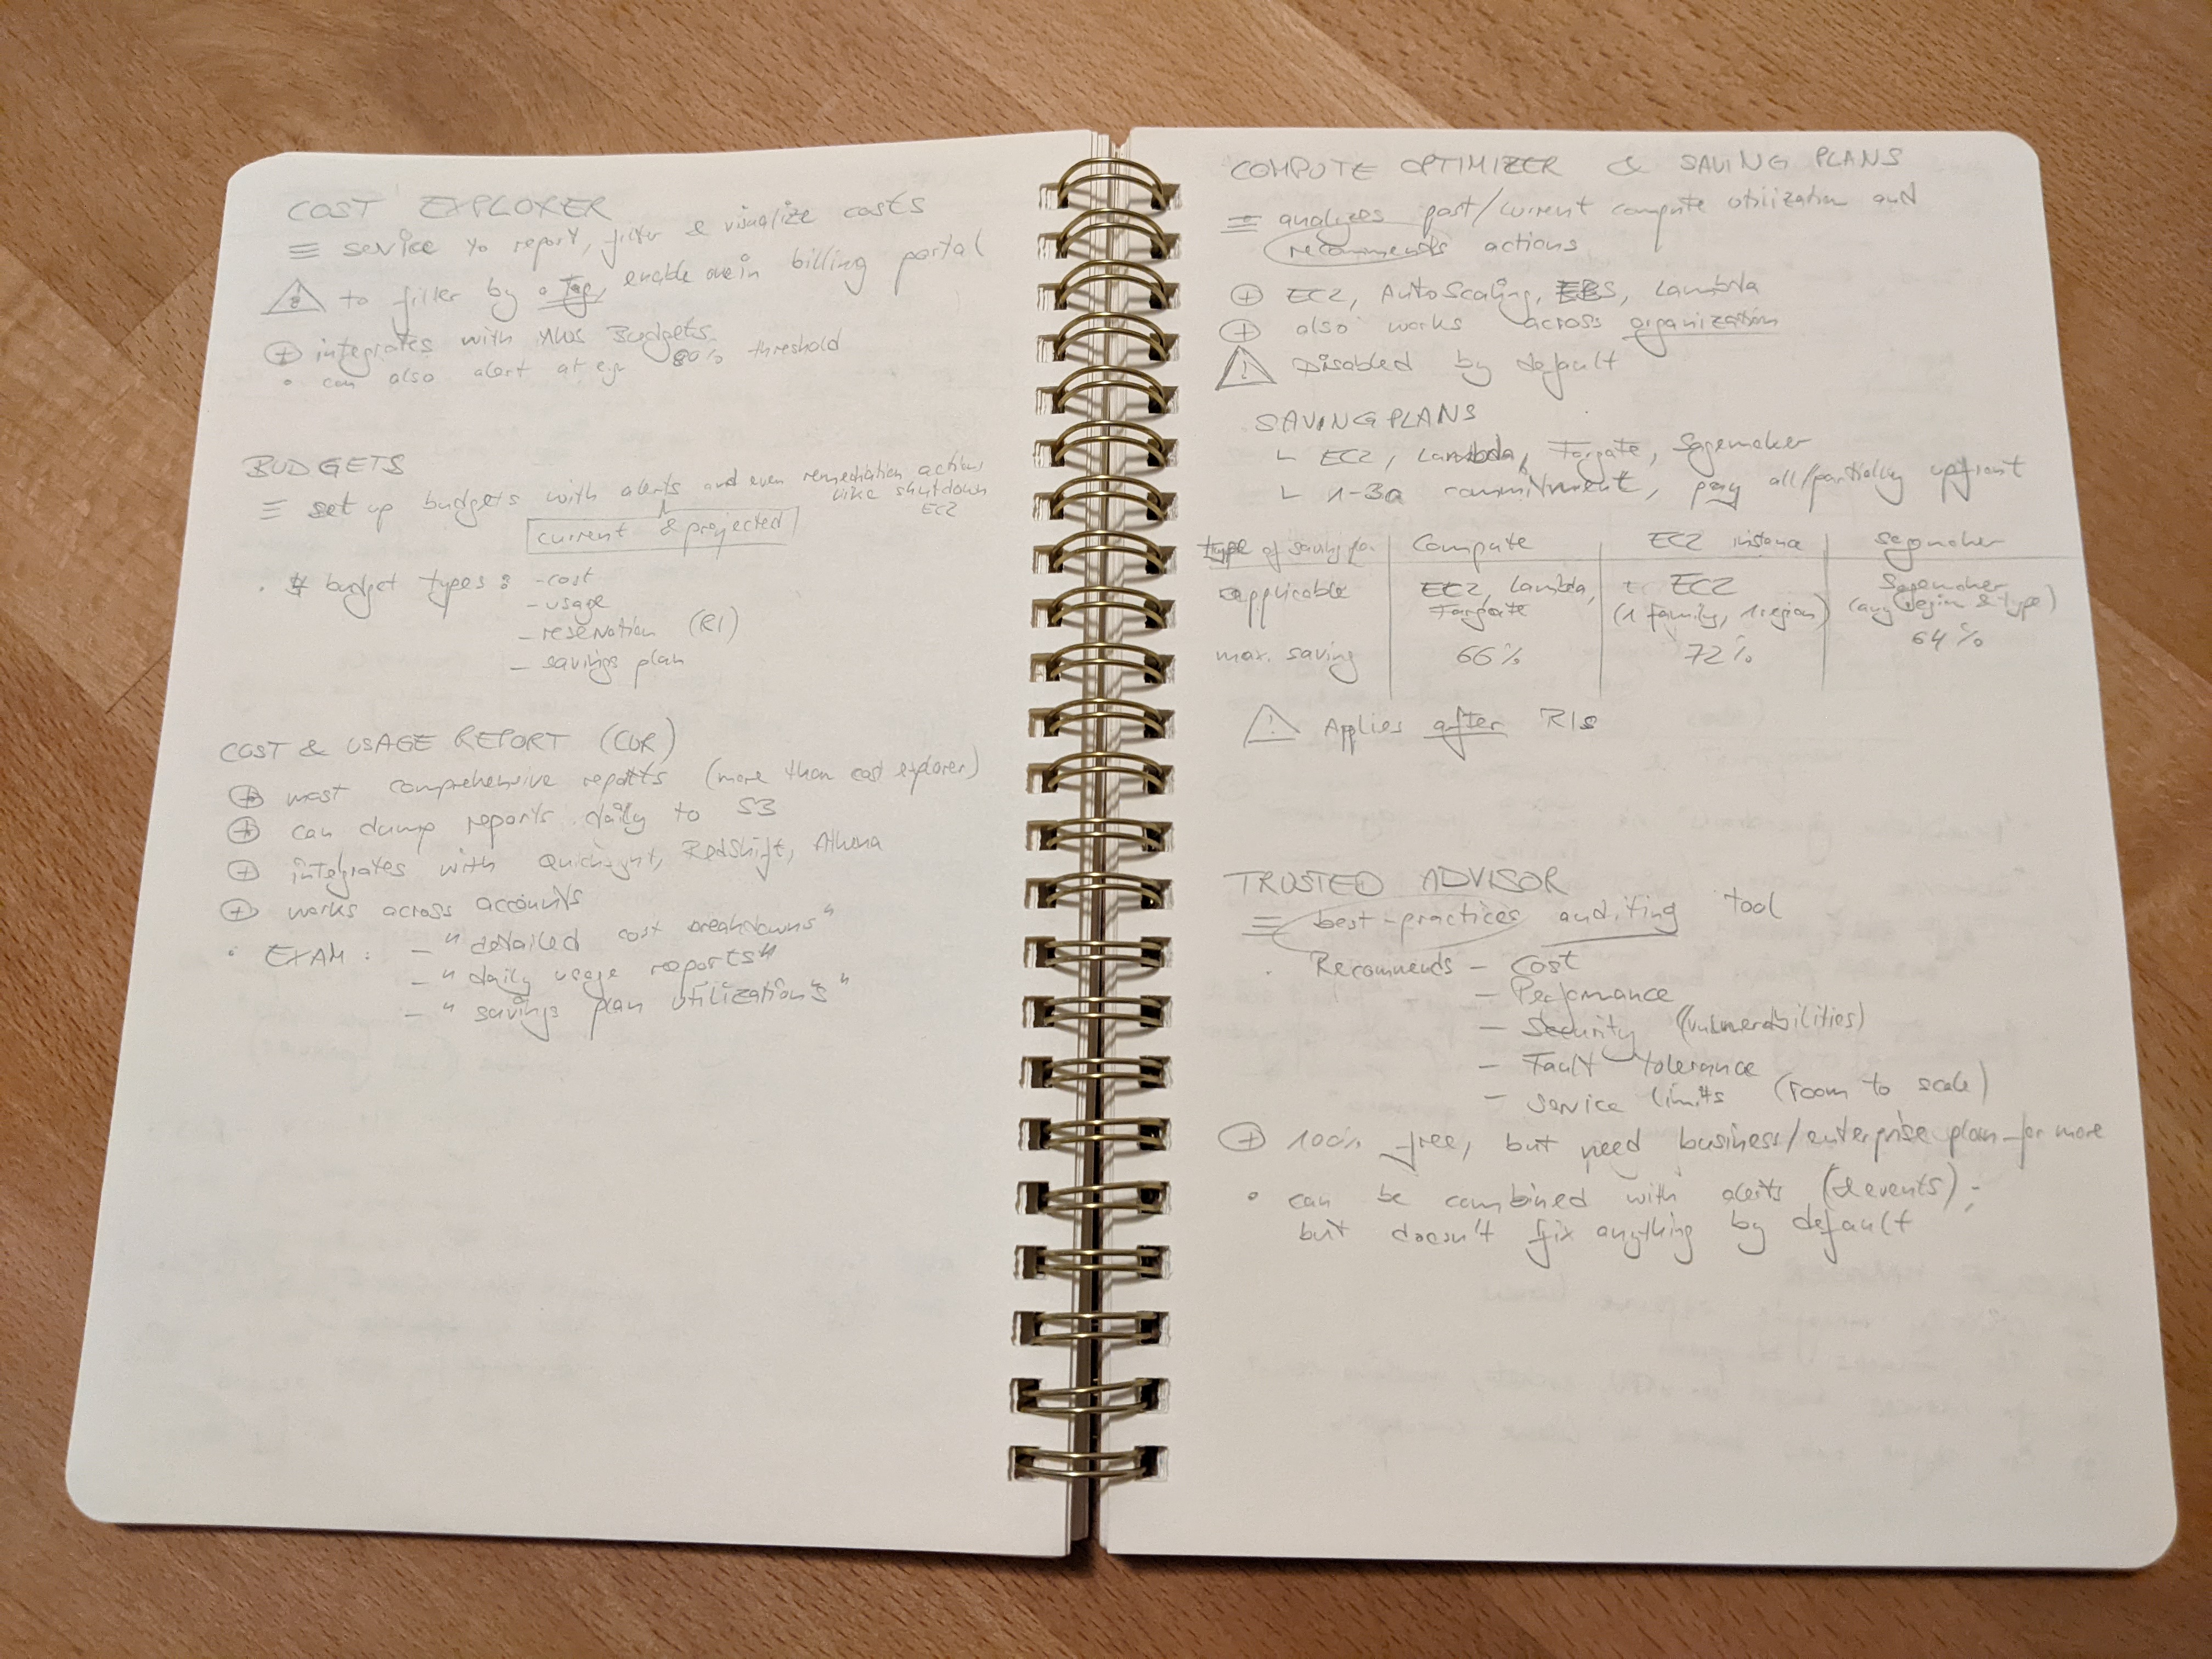 COST EXPLORER
≡ service to report, filter & visualize costs
⚠ to filter by a Tag, enable one in billing portal
⊕ integrates with AWS Budgets
• can also alert at e.g. 80% threshold
BUDGETS
≡ set up budgets with alerts and even remediation actions
like shutdown
EC2
current & projected
• 4 budget types: - cost
- usage
- reservation (RI)
- savings plan
COST & USAGE REPORT (CUR)
⊕ most comprehensive reports (more than cost explorer)
⊕ can dump reports daily to S3
⊕ integrates with Quicksight, RedShift, Athena
⊕ works across accounts
• EXAM: - "detailed cost breakdowns"
- "daily usage reports"
- "savings plan utilizations"
COMPUTE OPTIMIZER & SAVING PLANS
≡ analyzes past/current compute utilization and
recommends actions
⊕ EC2, AutoScaling, EBS, Lambda
⊕ also works across organization
⚠ Disabled by default
SAVING PLANS
↳ EC2, Lambda, Fargate, Sagemaker
↳ 1-3a commitment, pay all/partially upfront
type of saving Compute EC2 instance Sagemaker
applicable EC2, Lambda, EC2 Sagemaker
Fargate (1 family, 1 region) (any region & type)
max. saving 66% 72% 64%
⚠ Applies after RIs
TRUSTED ADVISOR
≡ best-practices auditing tool
• Recommends - Cost
- Performance
- Security (vulnerabilities)
- Fault tolerance
- Service limits (room to scale)
⊕ 100% free, but need business/enterprise plan for more
• can be combined with alerts (& events);
but doesn't fix anything by default